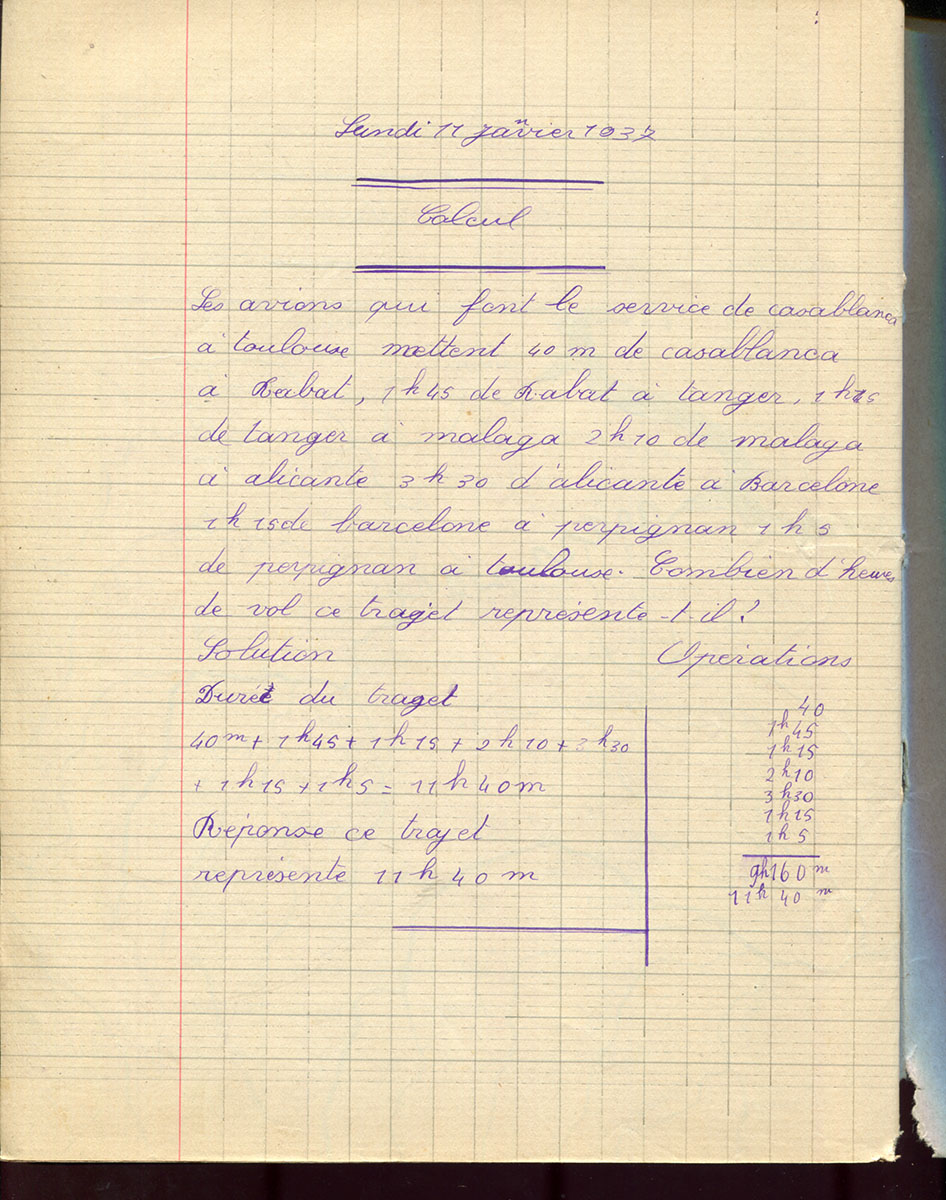 Lundi 11 janvier 1937
Calcul
Les avions qui font le service de casablanca
à toulouse mettent 40 m de casablanca
à Rabat, 1 h 45 de Rabat à tanger, 1 h 15
de tanger à malaga 2 h 10 de malaga
à alicante 3 h 30 d'alicante à Barcelone
1 h 15 de barcelone à perpignan 1 h 5
de perpignan à toulouse. Combien d'heures
de vol ce traget représente-t-il?
Solution
Opérations
Durée du traget
40 m + 1 h 45 + 1 h 15 + 2 h 10 + 3 h 30
+ 1 h 15 + 1 h 5 = 11 h 40 m
Réponse ce trajet
représente 11 h 40 m
40
1 h 45
1 h 15
2 h 10
3 h 30
1 h 15
1 h 5
9 h 160 m
11 h 40 m